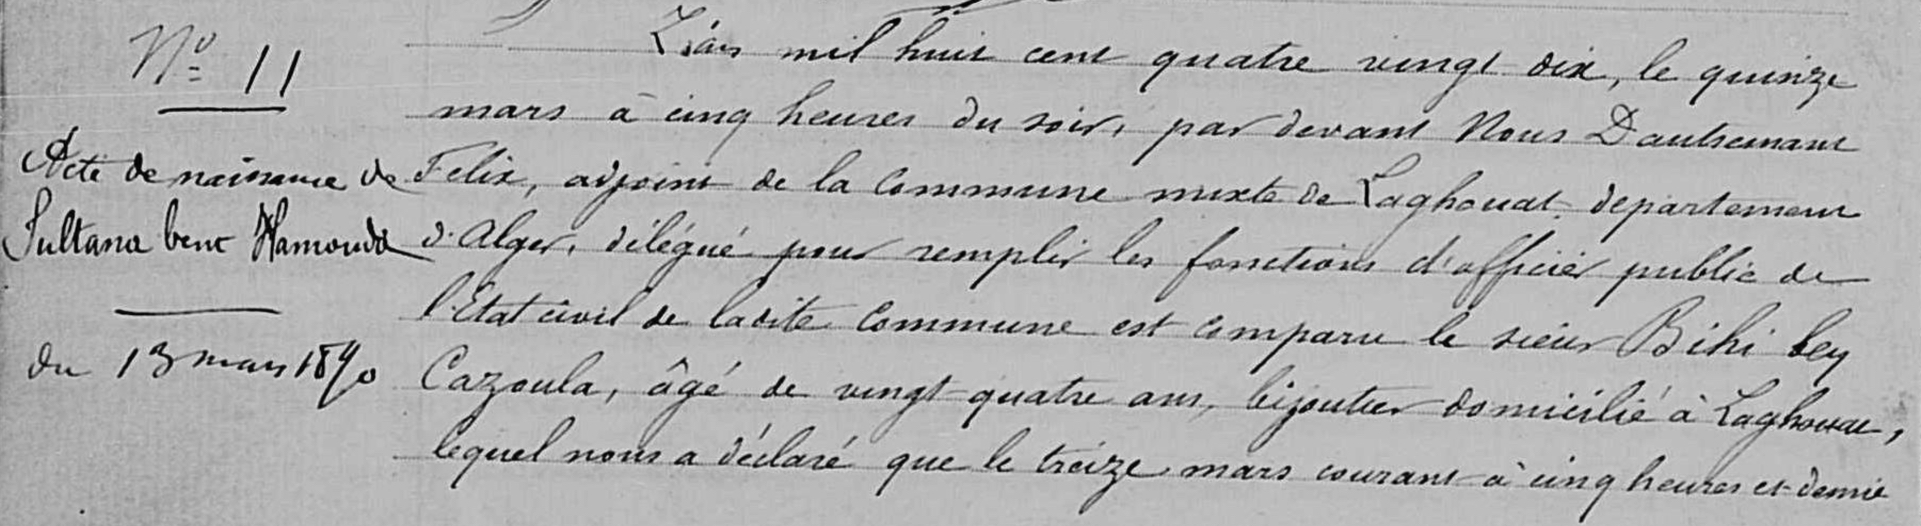 N° 11
Acte de naissance de
Sultana bent Hamouda
du 13 mars 1890
L'an mil huit cent quatre vingt dix, le quinze
mars à cinq heures du soir, par devant Nous Dautremant
Felix, adjoint de la Commune mixte de Laghouat, département
d'Alger, délégué pour remplir les fonctions d'officier public de
l'Etat civil de ladite Commune est comparu le sieur Bihi ben
Cazoula, âgé de vingt quatre ans, bijoutier domicilié à Laghouat,
lequel nous a déclaré que le treize mars courant à cinq heures et demie